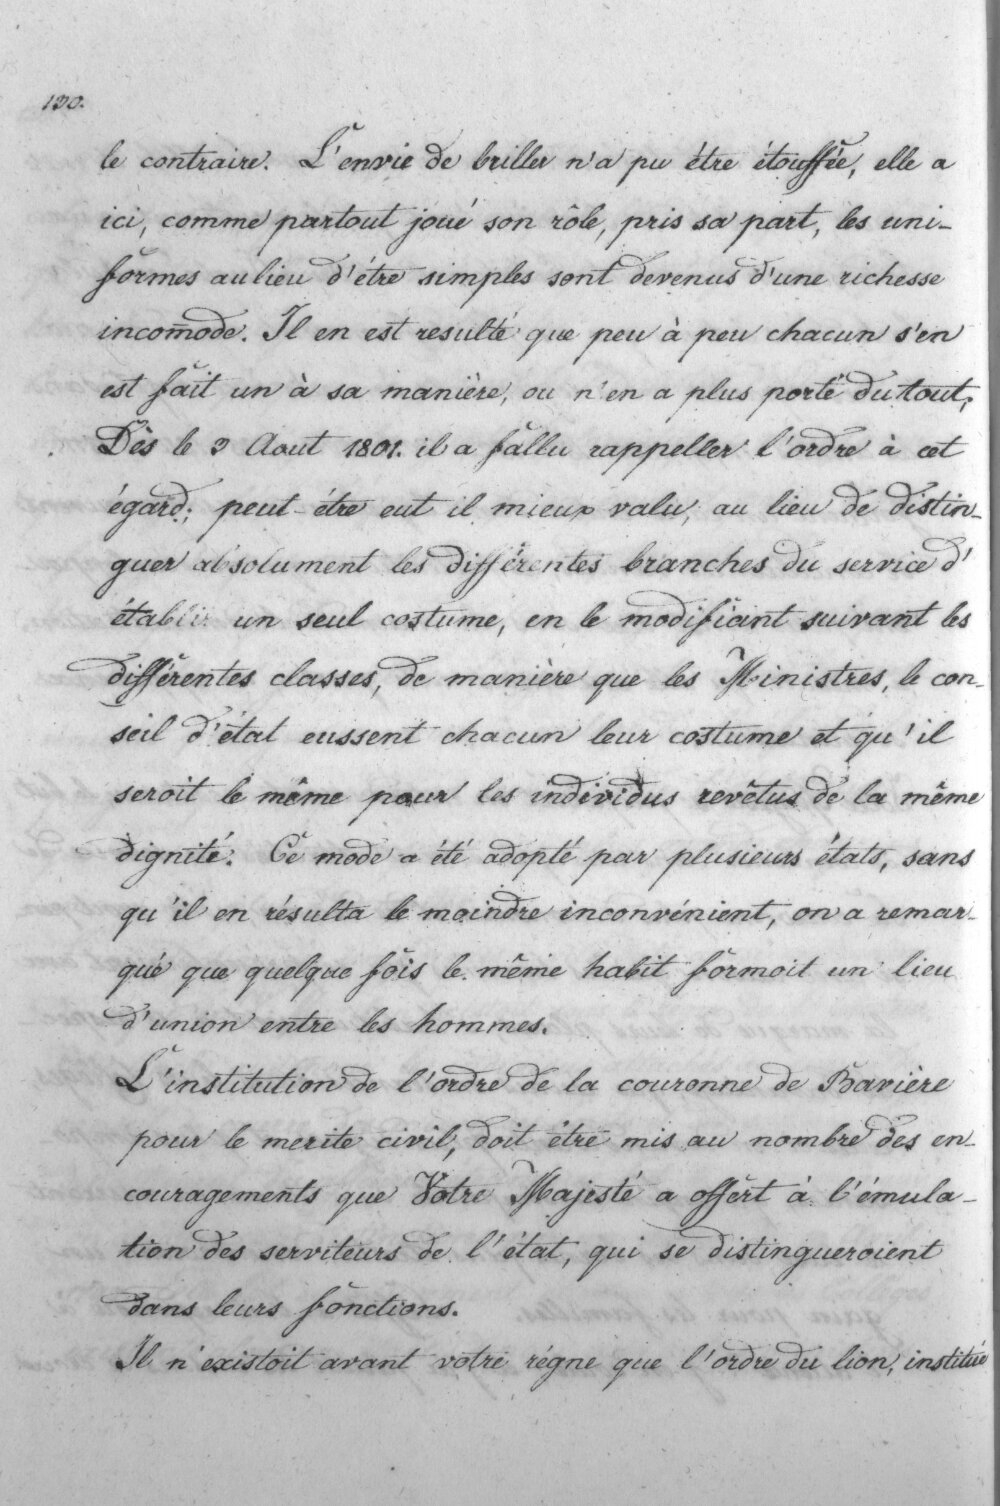 130.
le contraire. L'envie de briller n'a pu étre étouffée, elle a
ici, comme partout joué son rôle, pris sa part, les uni-
formes au lieu d'étre simples sont devenus d'une richesse
incom̄ode. Il en est resulté que peu à peu chacun s'en
est fait un à sa manière, ou n'en a plus porté du tout;
Dès le 9 Aout 1801. il a fallu rappeller l'ordre à cet
égard; peut-étre eut il mieux valu, au lieu de distin-
guer absolument les différentes branches du service d'
établir un seul costume, en le modifiant suivant les
différentes classes, de manière que les Ministres, le con-
seil d'état eussent chacun leur costume et qu'il
seroit le même pour les individus revêtus de la même
dignité. Ce mode a été adopté par plusieurs états, sans
qu'il en résulta le moindre inconvénient, on a remar-
qué que quelque fois le même habit formoit un lieu
d'union entre les hommes.
L'institution de l'ordre de la couronne de Bavière
pour le merite civil, doit être mis au nombre des en-
couragements que Votre Majesté a offert à l'émula-
tion des serviteurs de l'état, qui se distingueroient
dans leurs fonctions.
Il n'existoit avant votre régne que l'ordre du lion, institué